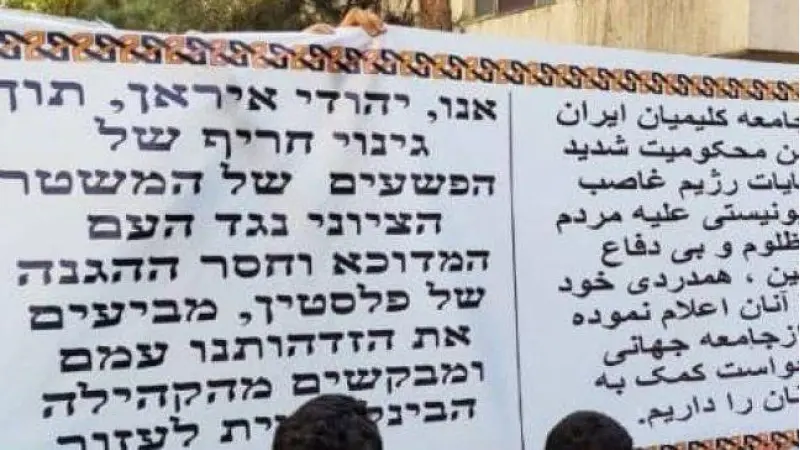 אנו, יהודי איראן, תוך
גינוי חריף של
הפשעים של המשטר
הציוני נגד העם
המדוכא וחסר ההגנה
של פלסטין, מביעים
את הזדהותנו עמם
ומבקשים מהקהילה
לעזור
جامعه کلیمیان ایران
محکومیت شدید
رژیم غاصب
علیه مردم
و بی دفاع
، همدردی خود
آنان اعلام نموده
ازجامعه جهانی
کمک به
را داریم.